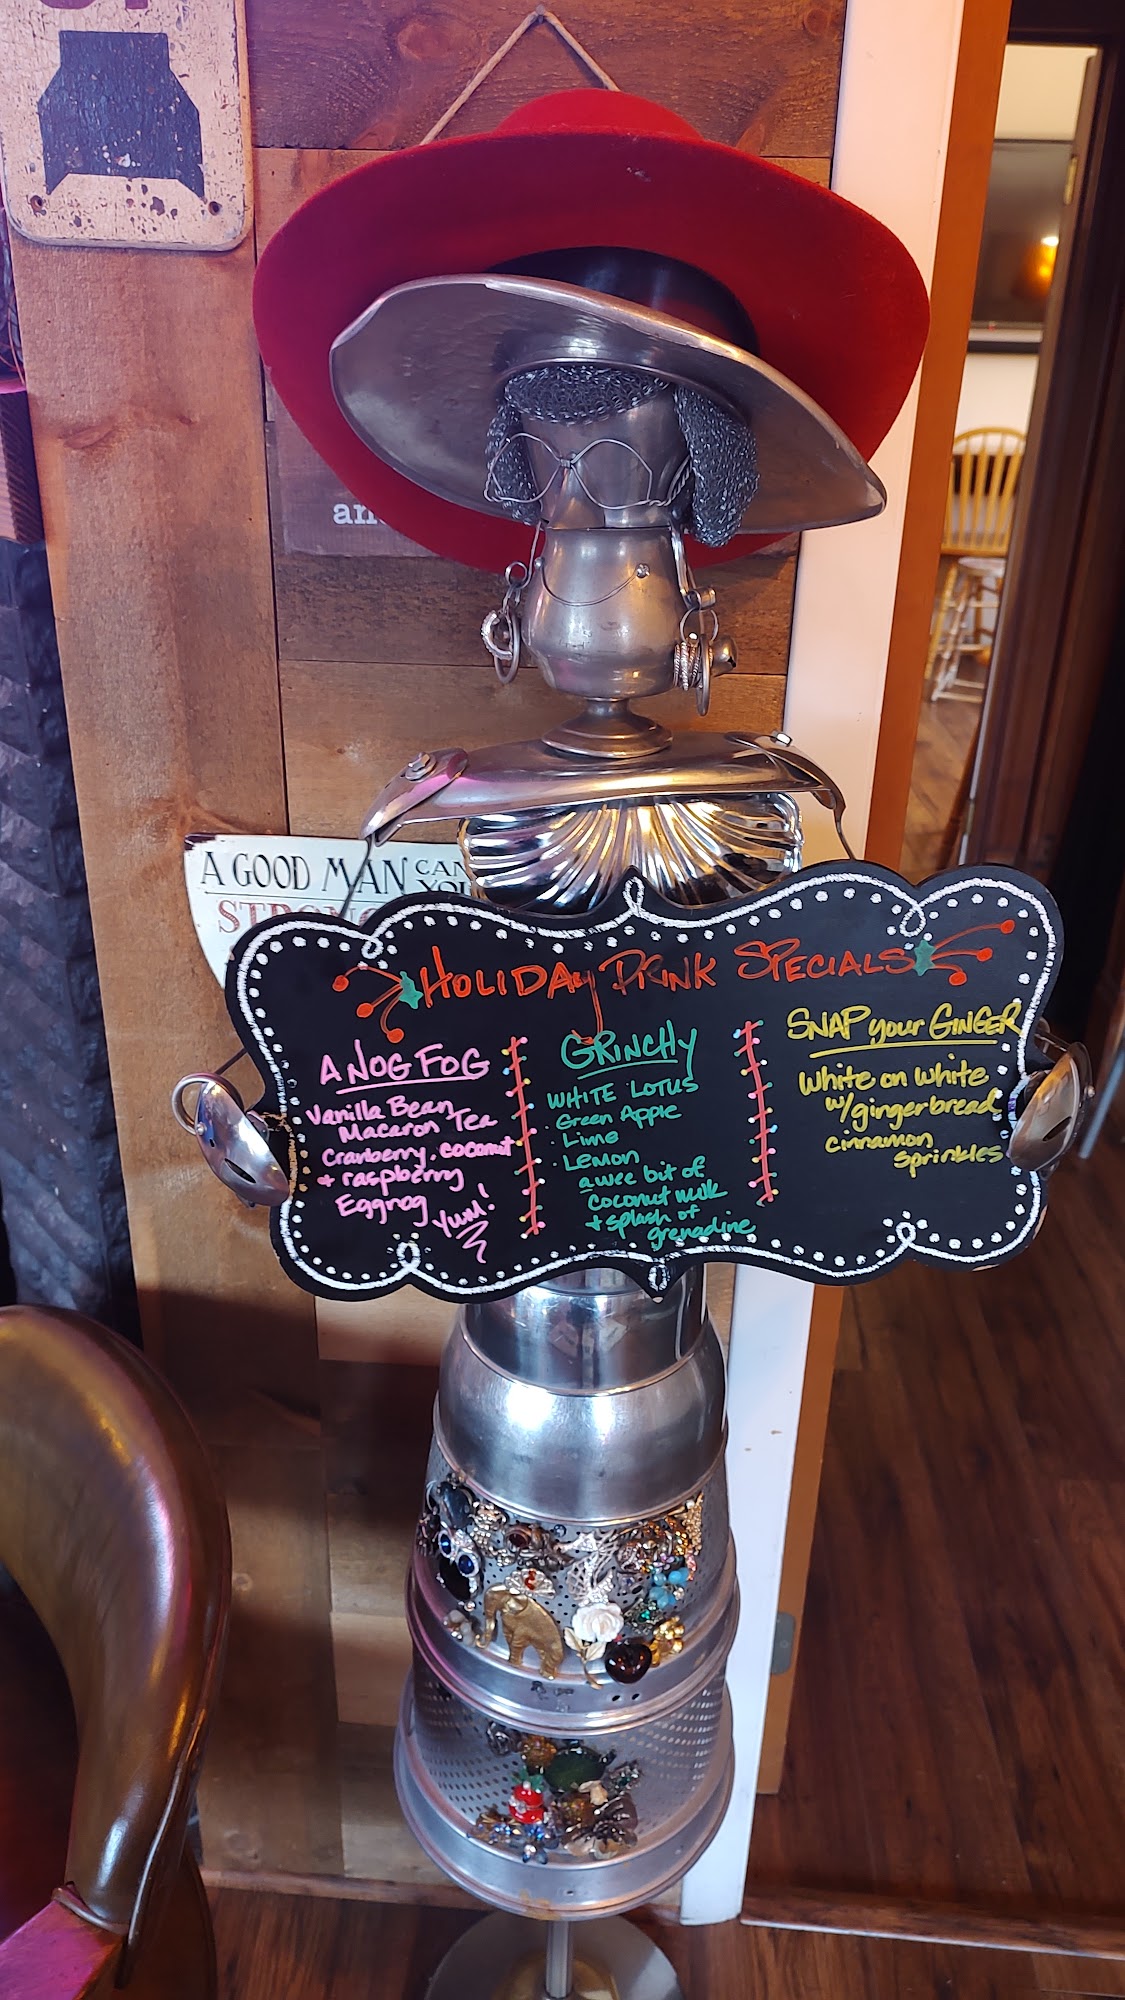 an
A GOOD MAN CAN
YOU
STRONG
HOLIDAy DRINK SPECIALS
A NOG FOG
Vanilla Bean
Macaron Tea
Cranberry, coconut
+ raspberry
Eggnog
YUM!
GRINCHY
WHITE LOTUS
· Green Apple
· Lime
· LEMON
a wee bit of
coconut milk
+ splash of
grenadine
SNAP your GINGER
White on white
w/gingerbread
cinnamon
sprinkles